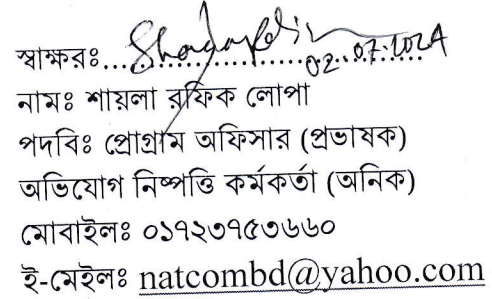 স্বাক্ষরঃ.................................... 02.07.2024
নামঃ শায়লা রফিক লোপা
পদবিঃ প্রোগ্রাম অফিসার (প্রভাষক)
অভিযোগ নিষ্পত্তি কর্মকর্তা (অনিক)
মোবাইলঃ ০১৭২৩৭৫৩৬৬০
ই-মেইলঃ natcombd@yahoo.com